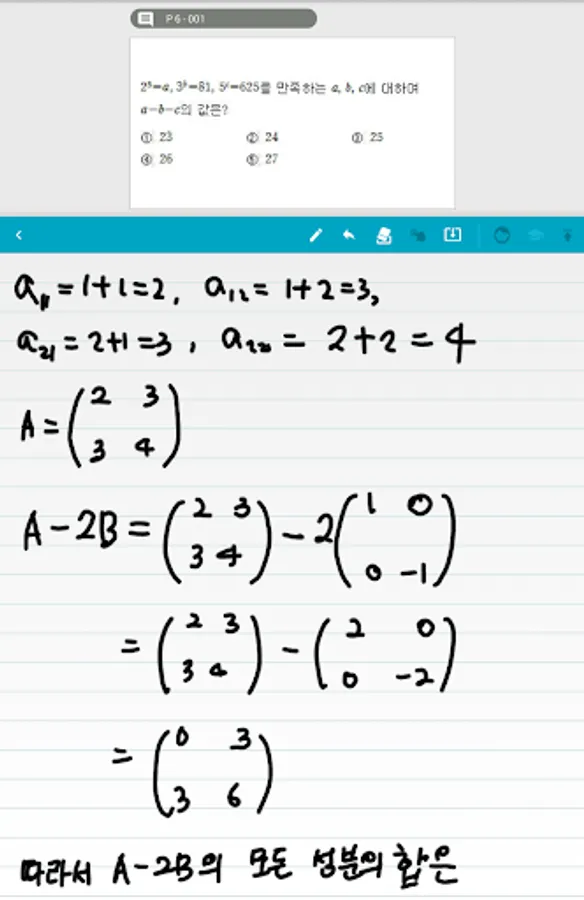 P6-001
2⁵=a, 3ᵇ=81, 5ᶜ=625를 만족하는 a, b, c에 대하여
a-b-c의 값은?
① 23 ② 24 ③ 25
④ 26 ⑤ 27
a₁₁=1+1=2, a₁₂=1+2=3,
a₂₁=2+1=3, a₂₂=2+2=4
A=(2 3
3 4)
A-2B=(2 3
3 4)-2(1 0
0 -1)
=(2 3
3 4)-(2 0
0 -2)
=(0 3
3 6)
따라서 A-2B의 모든 성분의 합은